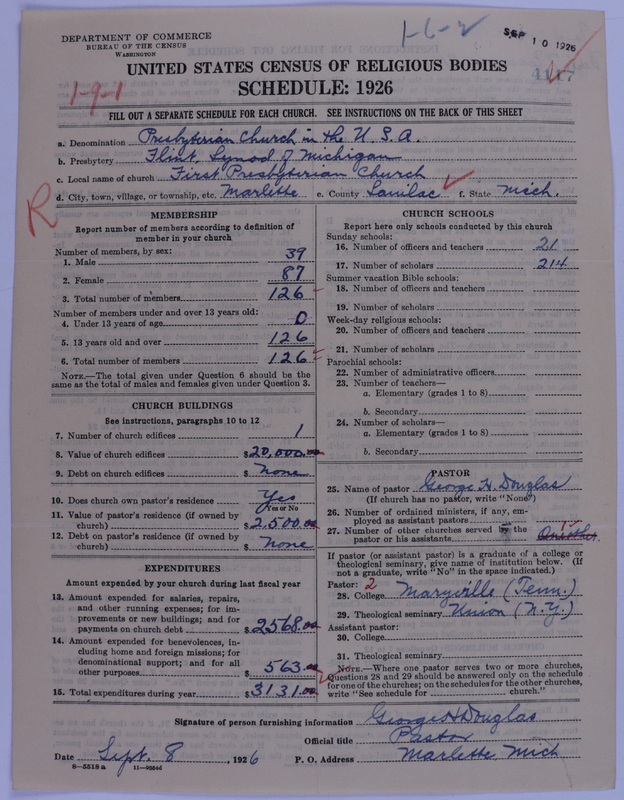 DEPARTMENT OF COMMERCE
BUREAU OF THE CENSUS
WASHINGTON
1-6-2
SEP 10 1926
1-9-1
UNITED STATES CENSUS OF RELIGIOUS BODIES
SCHEDULE: 1926
FILL OUT A SEPARATE SCHEDULE FOR EACH CHURCH. SEE INSTRUCTIONS ON THE BACK OF THIS SHEET
a. Denomination Presbyterian Church in the U. S. A.
b. Presbytery Flint, Synod of Michigan
c. Local name of church First Presbyterian Church
d. City, town, village, or township, etc. Marlette e. County Sanilac f. State Mich.
R
MEMBERSHIP
Report number of members according to definition of member in your church
Number of members, by sex:
1. Male 39
2. Female 87
3. Total number of members 126
Number of members under and over 13 years old:
4. Under 13 years of age 0
5. 13 years old and over 126
6. Total number of members 126
NOTE.—The total given under Question 6 should be the
same as the total of males and females given under Question 3.
CHURCH BUILDINGS
See instructions, paragraphs 10 to 12
7. Number of church edifices 1
8. Value of church edifices $20,000.00
9. Debt on church edifices $None
10. Does church own pastor's residence Yes
Yes or No
11. Value of pastor's residence (if owned by
church) $2,500.00
12. Debt on pastor's residence (if owned by
church) $None
EXPENDITURES
Amount expended by your church during last fiscal year
13. Amount expended for salaries, repairs,
and other running expenses; for im-
provements or new buildings; and for
payments on church debt $2568.00
14. Amount expended for benevolences, in-
cluding home and foreign missions; for
denominational support; and for all
other purposes $563.00
15. Total expenditures during year $3131.00
CHURCH SCHOOLS
Report here only schools conducted by this church
Sunday schools:
16. Number of officers and teachers 21
17. Number of scholars 214
Summer vacation Bible schools:
18. Number of officers and teachers
19. Number of scholars
Week-day religious schools:
20. Number of officers and teachers
21. Number of scholars
Parochial schools:
22. Number of administrative officers
23. Number of teachers—
a. Elementary (grades 1 to 8)
b. Secondary
24. Number of scholars—
a. Elementary (grades 1 to 8)
b. Secondary
PASTOR
25. Name of pastor George H. Douglas
(If church has no pastor, write "None")
26. Number of ordained ministers, if any, em-
ployed as assistant pastors
27. Number of other churches served by the
pastor or his assistants 1
If pastor (or assistant pastor) is a graduate of a college or
theological seminary, give name of institution below. (If
not a graduate, write "No" in the space indicated.)
Pastor: 2
28. College Maryville (Tenn.)
29. Theological seminary Union (N.Y.)
Assistant pastor:
30. College
31. Theological seminary
NOTE.—Where one pastor serves two or more churches,
Questions 28 and 29 should be answered only on the schedule
for one of the churches; on the schedules for the other churches,
write "See schedule for church."
Signature of person furnishing information George H Douglas
Official title Pastor
Date Sept. 8, 1926 P. O. Address Marlette Mich
8-5518 a